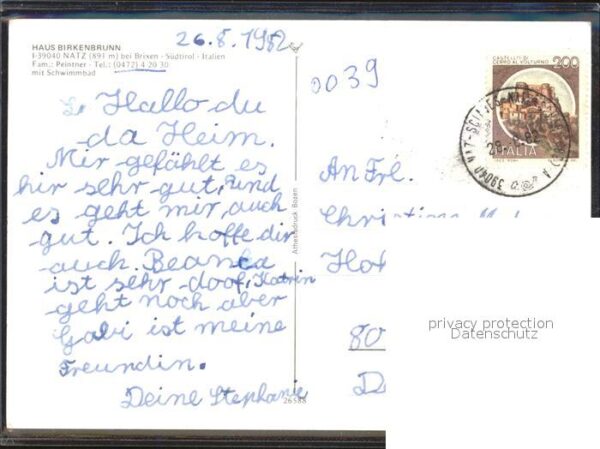 26.8.1982
HAUS BIRKENBRUNN
I-39040 NATZ (891 m) bei Brixen · Südtirol · Italien
Fam.: Peintner - Tel.: (0472) 4 20 30
mit Schwimmbad
0039
CASTELLO DI
CERRO AL VOLTURNO
200
ITALIA
39040
Hallo du
da Heim.
Mir gefählt es
hir sehr gut, und
es geht mir auch
gut. Ich hoffe dir
auch. Beanca
ist sehr doof, Katrin
geht noch aber
Gabi ist meine
Freundin.
Deine Stephanie
26588
Athesiadruck Bozen
An Frl.
80
privacy protection
Datenschutz